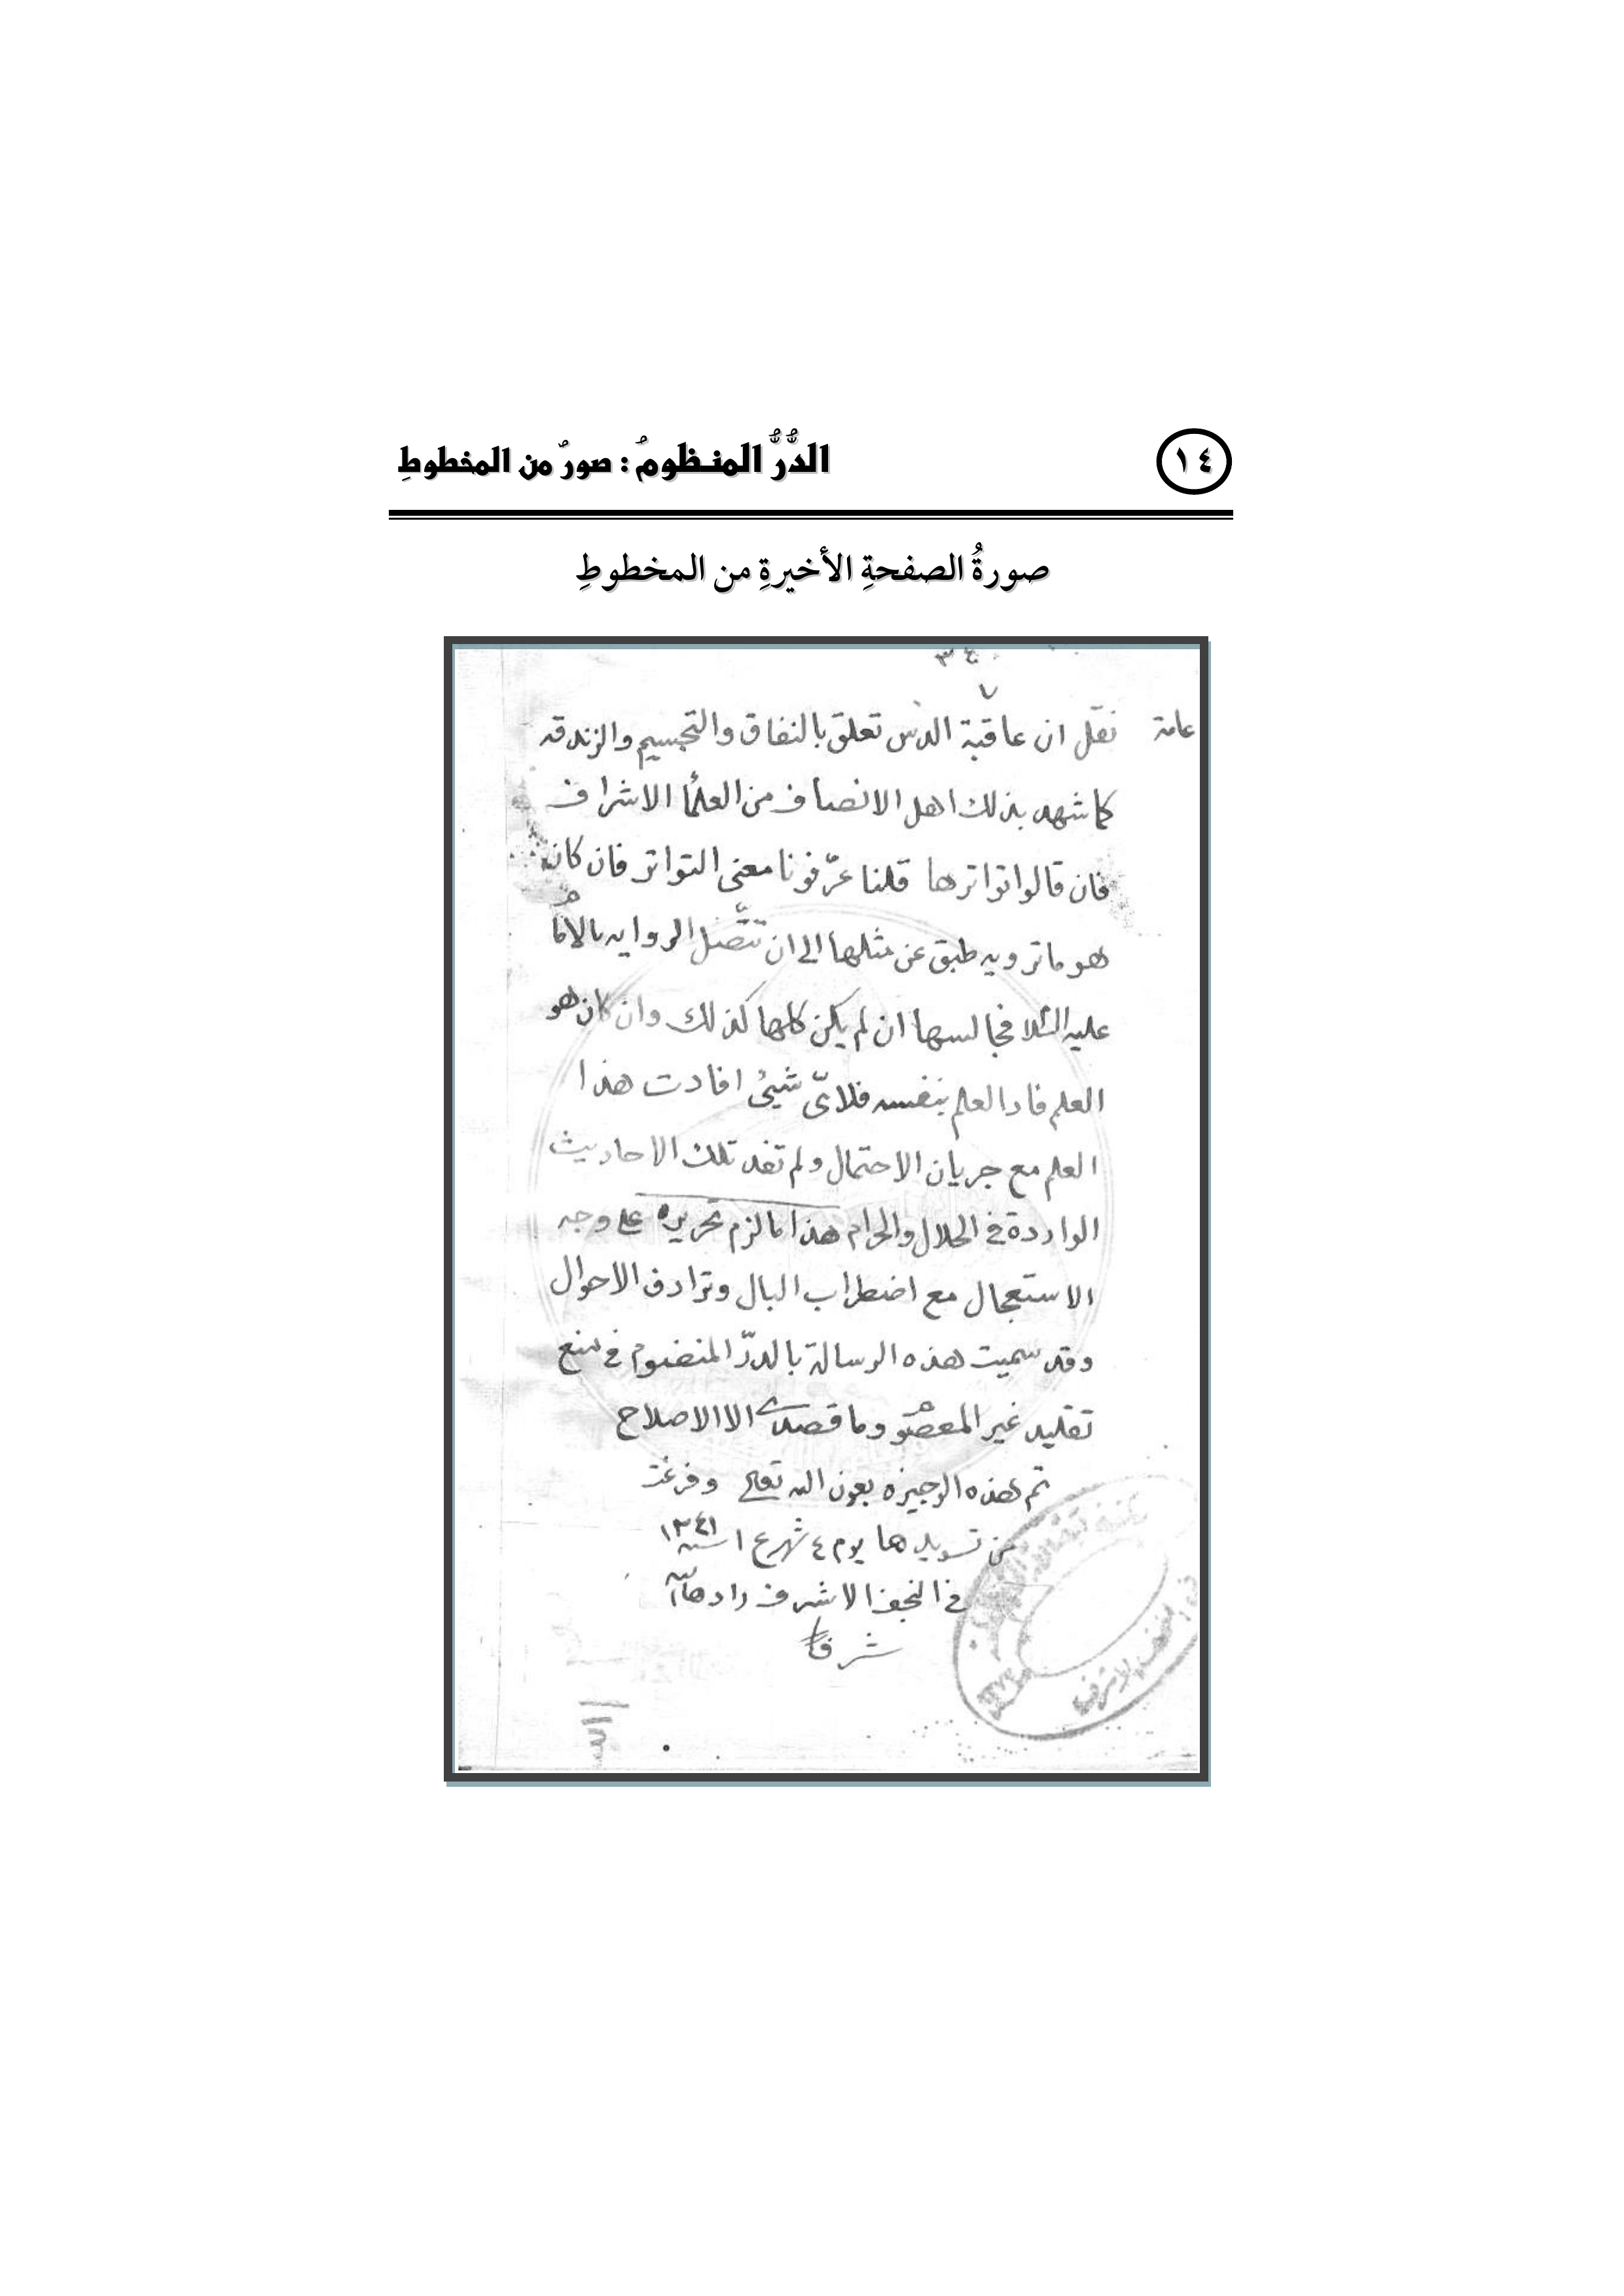 ١٤
الدُّرُّ المنظومُ : صورٌ من المخطوطِ
صورةُ الصفحةِ الأخيرةِ من المخطوطِ
٣٤
٧
عامة نقل ان عاقبة الدس تعلق بالنفاق والتجسيم والزندقه
كما شهد بذلك اهل الانصاف من العلمأ الاشراف
فان قالوا تواترها قلنا عرّفونا معنى التواتر فان كان
هو ما ترويه طبق عن مثلها الى ان تتّصل الروايه بالاما
عليه السلا مجالسها ان لم يكن كلها كذلك وان كان هو
العلم فاد العلم بنفسه فلاىّ شيئ افادت هذا
العلم مع جريان الاحتمال ولم تفد تلك الاحاديث
الواردة في الحلال والحرام هذا ما لزم تحريره على وجه
الاستعجال مع اضطراب البال وترادف الاحوال
وقد سميت هذه الرسالة بالدرّ المنضوم في منع
تقليد غير المعصو وما قصدى الا الاصلاح
تم هذه الوجيزه بعون الله تعالى وفرغت
من تسويدها يوم ٤ شهر ع ١ سنه ١٣٤١
في النجف الاشرف زادها الله
شرفا
النجف الاشرف